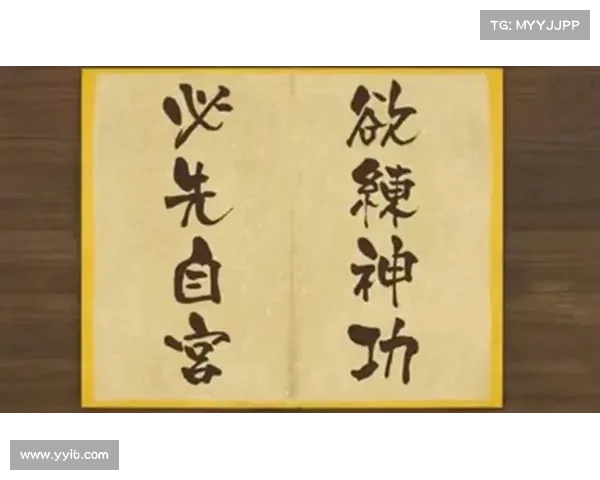 TG: MYYJJPP
欲練神功
必先自宮
www.yyib.com